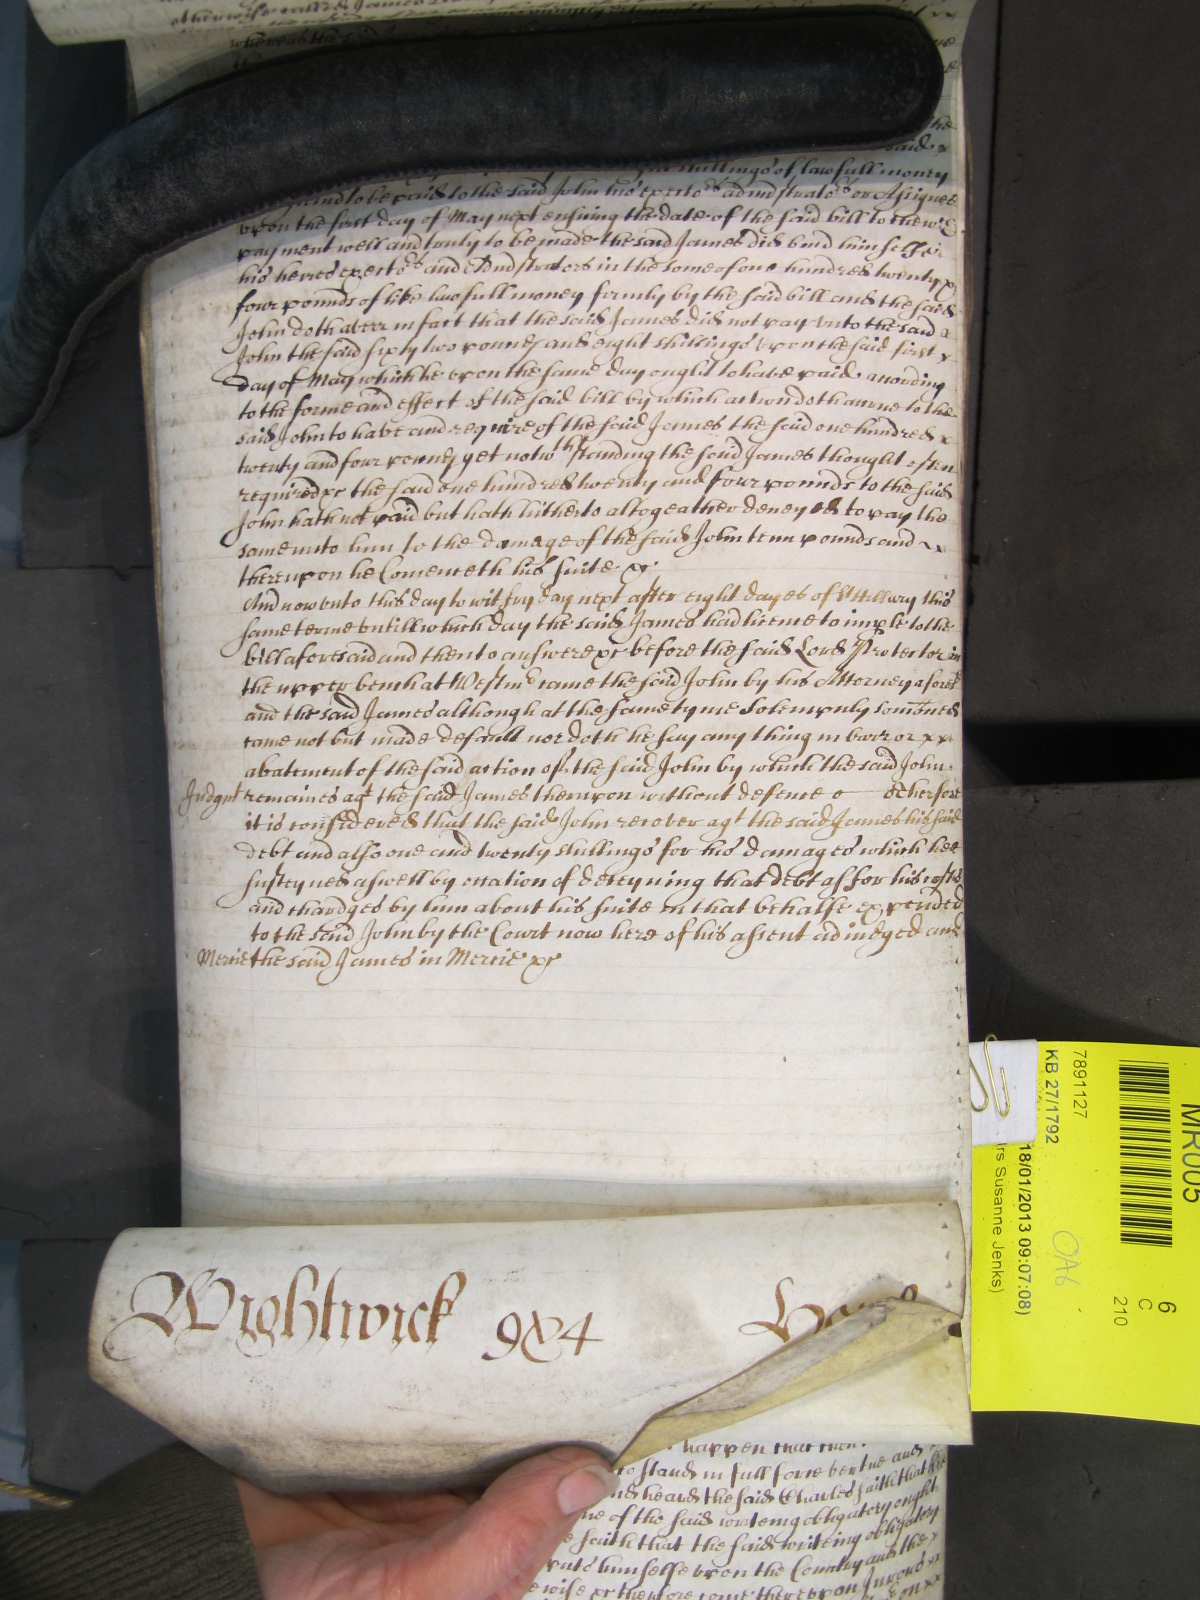 otherwise called James
whereas the said
the
said x
shillings of lawfull money
and to be paid to the said John his exectors administrators or Assignes
upon the first day of May next ensuing the date of the said bill to the wch
payment well and truly to be made the said James did bind himselfe
his heires exectors and Administrators in the some of one hundred twenty x
four pounds of like lawfull money firmly by the said bill and the said
John doth averr in fact that the said James did not pay unto the said x
John the said sixty two pounds and eight shillings upon the said first x
day of May which he upon the same day ought to have paid according
to the forme and effect of the said bill by which accion doth accrue to the
said John to have and require of the said James the said one hundred x
twenty and four pounds yet notwthstanding the said James thought often
required xc the said one hundred twenty and four pounds to the said
John hath not paid but hath hitherto altogeather denyed to pay the
same unto him to the damage of the said John tenn pounds and x x
thereupon he Comeneth his suite xc
And now unto this day to wit fryday next after eight dayes of St Hillary this
same terme untill which day the said James had licence to imple to the
bill aforesaid and then to answere xc before the said Lord Protector in
the upper bench at Westmr came the said John by his Attorney aforesd
and the said James although at the same tyme solempnly somoned
came not but made default nor doth he say any thing in barr or x x
abatement of the said action of the said John by which the said John
Judgmt remaines agt the said James thereupon without defence o Therfore
it is considered that the said John recover agt the said James his said
debt and also one and twenty shillings for his damages which hee
susteyned aswell by occasion of deteyning that debt as for his costs
and chardges by him about his suite in that behalfe expended
to the said John by the Court now here of his assent adiudged and
Mercie the said James in Mercie xc
Wightwick 984
happen that then
to stand in full force vertue and
heard the said Charles saith that hee
of the said writeing obligatory ought
saith that the said writeing obligatory
puts himselfe upon the Country and the x
wise xc therfore come thereupon Jurors x x
MR005
6
C
210
7891127
KB 27/1792
OA6
18/01/2013 09:07:08)
rs Susanne Jenks)